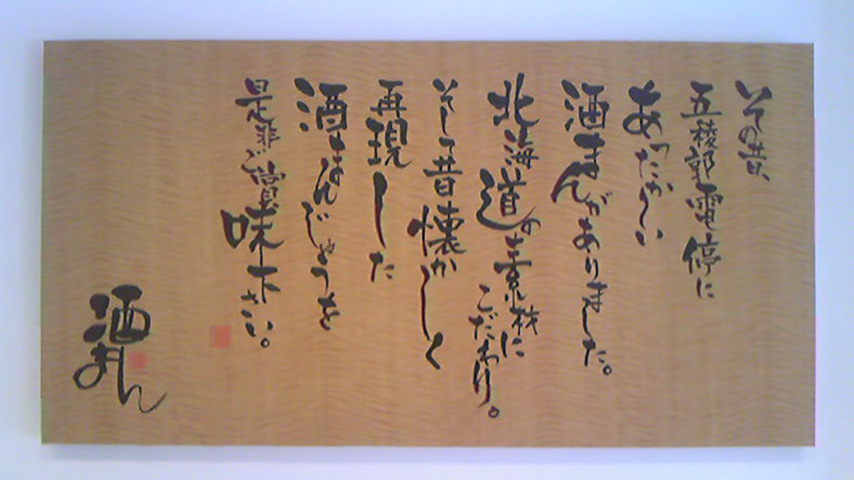 その昔、
五稜郭電停に
あったか〜い
酒まんがありました。
北海道の素材に
こだわり。
そして昔懐かしく
再現した
酒まんじゅうを
是非ご賞味下さい。
酒まん